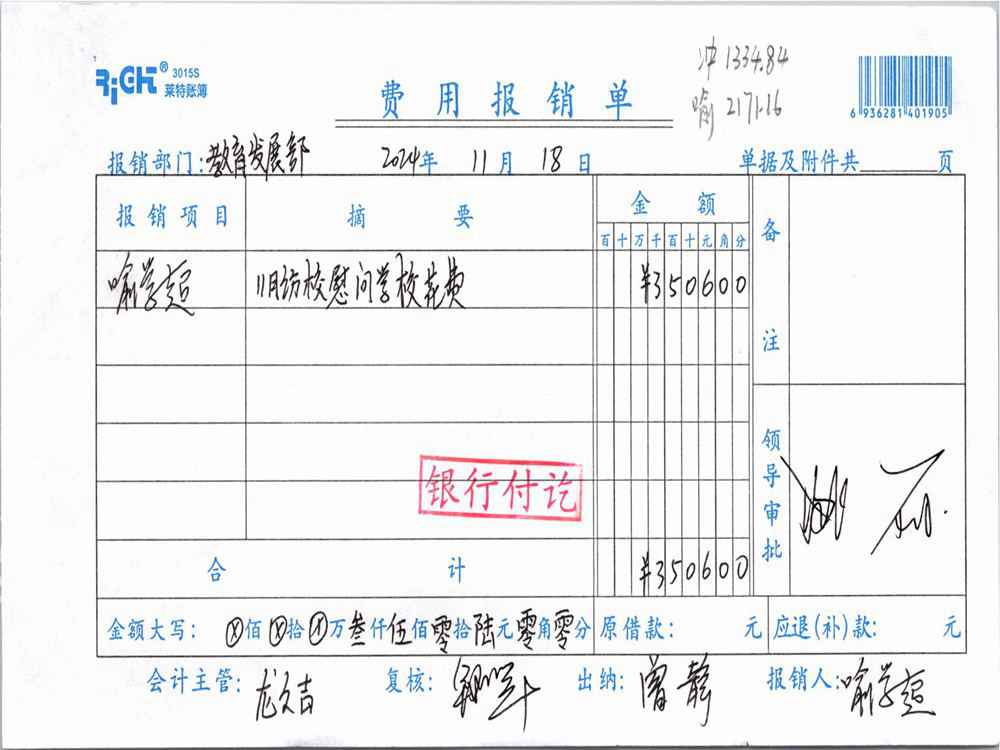 RiGHT® 3015S
莱特账簿
冲 1334.84
喻 2171.16
费用报销单
6 936281 401905
报销部门:教育发展部 2024年 11月 18日 单据及附件共 页
报销项目 摘要 金额 备注
百十万千百十元角分
喻学超 11月访校慰问学校花费 ¥350600
银行付讫
领导审批
合计 ¥350600
金额大写: ⊗佰⊗拾⊗万叁仟伍佰零拾陆元零角零分 原借款: 元 应退(补)款: 元
会计主管: 龙久吉 复核: 出纳: 曾静 报销人: 喻学超